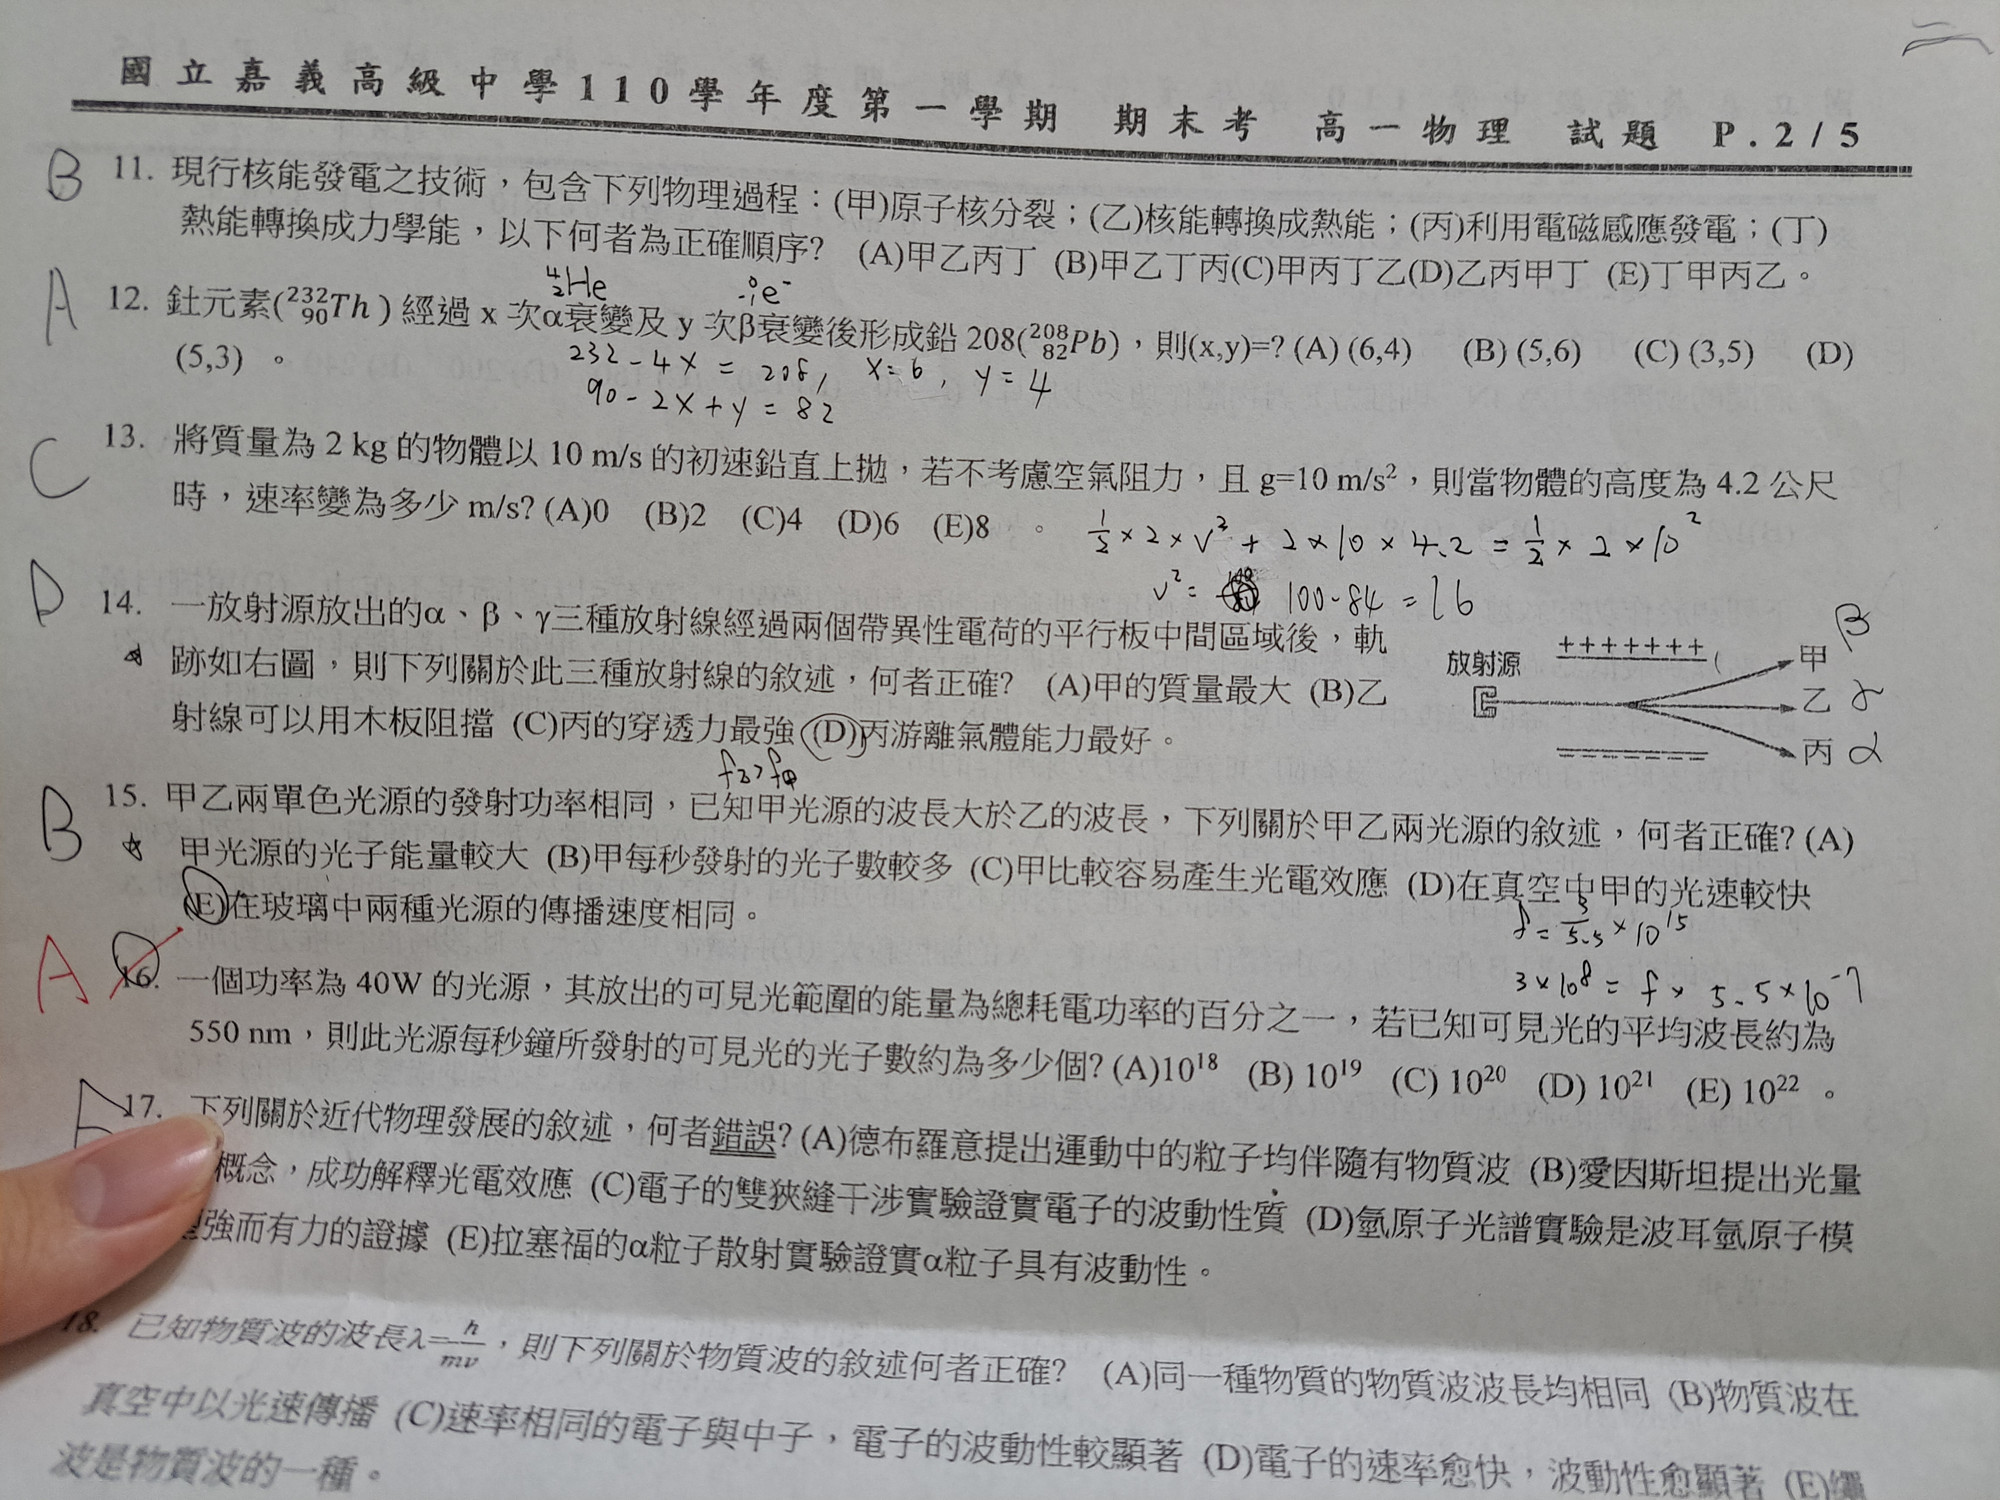 國立嘉義高級中學110學年度第一學期 期末考 高一物理 試題 P.2/5
B 11. 現行核能發電之技術，包含下列物理過程：(甲)原子核分裂；(乙)核能轉換成熱能；(丙)利用電磁感應發電；(丁)
熱能轉換成力學能，以下何者為正確順序? (A)甲乙丙丁 (B)甲乙丁丙(C)甲丙丁乙(D)乙丙甲丁 (E)丁甲丙乙。
⁴₂He ⁰₋₁e⁻
A 12. 釷元素(²³²₉₀Th) 經過 x 次α衰變及 y 次β衰變後形成鉛 208(²⁰⁸₈₂Pb)，則(x,y)=? (A) (6,4) (B) (5,6) (C) (3,5) (D)
(5,3) 。
232-4x = 208, x=6, y=4
90-2x+y=82
C 13. 將質量為 2 kg 的物體以 10 m/s 的初速鉛直上拋，若不考慮空氣阻力，且 g=10 m/s²，則當物體的高度為 4.2 公尺
時，速率變為多少 m/s? (A)0 (B)2 (C)4 (D)6 (E)8 。
½×2×v²+2×10×4.2=½×2×10²
v²= 100-84=16
D 14. 一放射源放出的α、β、γ三種放射線經過兩個帶異性電荷的平行板中間區域後，軌
跡如右圖，則下列關於此三種放射線的敘述，何者正確? (A)甲的質量最大 (B)乙
射線可以用木板阻擋 (C)丙的穿透力最強 (D)丙游離氣體能力最好。
放射源
+++++++
甲 β
乙 γ
丙 α
f乙>f甲
B 15. 甲乙兩單色光源的發射功率相同，已知甲光源的波長大於乙的波長，下列關於甲乙兩光源的敘述，何者正確? (A)
甲光源的光子能量較大 (B)甲每秒發射的光子數較多 (C)甲比較容易產生光電效應 (D)在真空中甲的光速較快
(E)在玻璃中兩種光源的傳播速度相同。
f=3/5.5×10¹⁵
3×10⁸=f×5.5×10⁻⁷
A 16. 一個功率為 40W 的光源，其放出的可見光範圍的能量為總耗電功率的百分之一，若已知可見光的平均波長約為
550 nm，則此光源每秒鐘所發射的可見光的光子數約為多少個? (A)10¹⁸ (B) 10¹⁹ (C) 10²⁰ (D) 10²¹ (E) 10²² 。
17. 下列關於近代物理發展的敘述，何者錯誤? (A)德布羅意提出運動中的粒子均伴隨有物質波 (B)愛因斯坦提出光量
概念，成功解釋光電效應 (C)電子的雙狹縫干涉實驗證實電子的波動性質 (D)氫原子光譜實驗是波耳氫原子模
強而有力的證據 (E)拉塞福的α粒子散射實驗證實α粒子具有波動性。
18. 已知物質波的波長λ=h/mv，則下列關於物質波的敘述何者正確? (A)同一種物質的物質波波長均相同 (B)物質波在
真空中以光速傳播 (C)速率相同的電子與中子，電子的波動性較顯著 (D)電子的速率愈快，波動性愈顯著 (E)繩
波是物質波的一種。